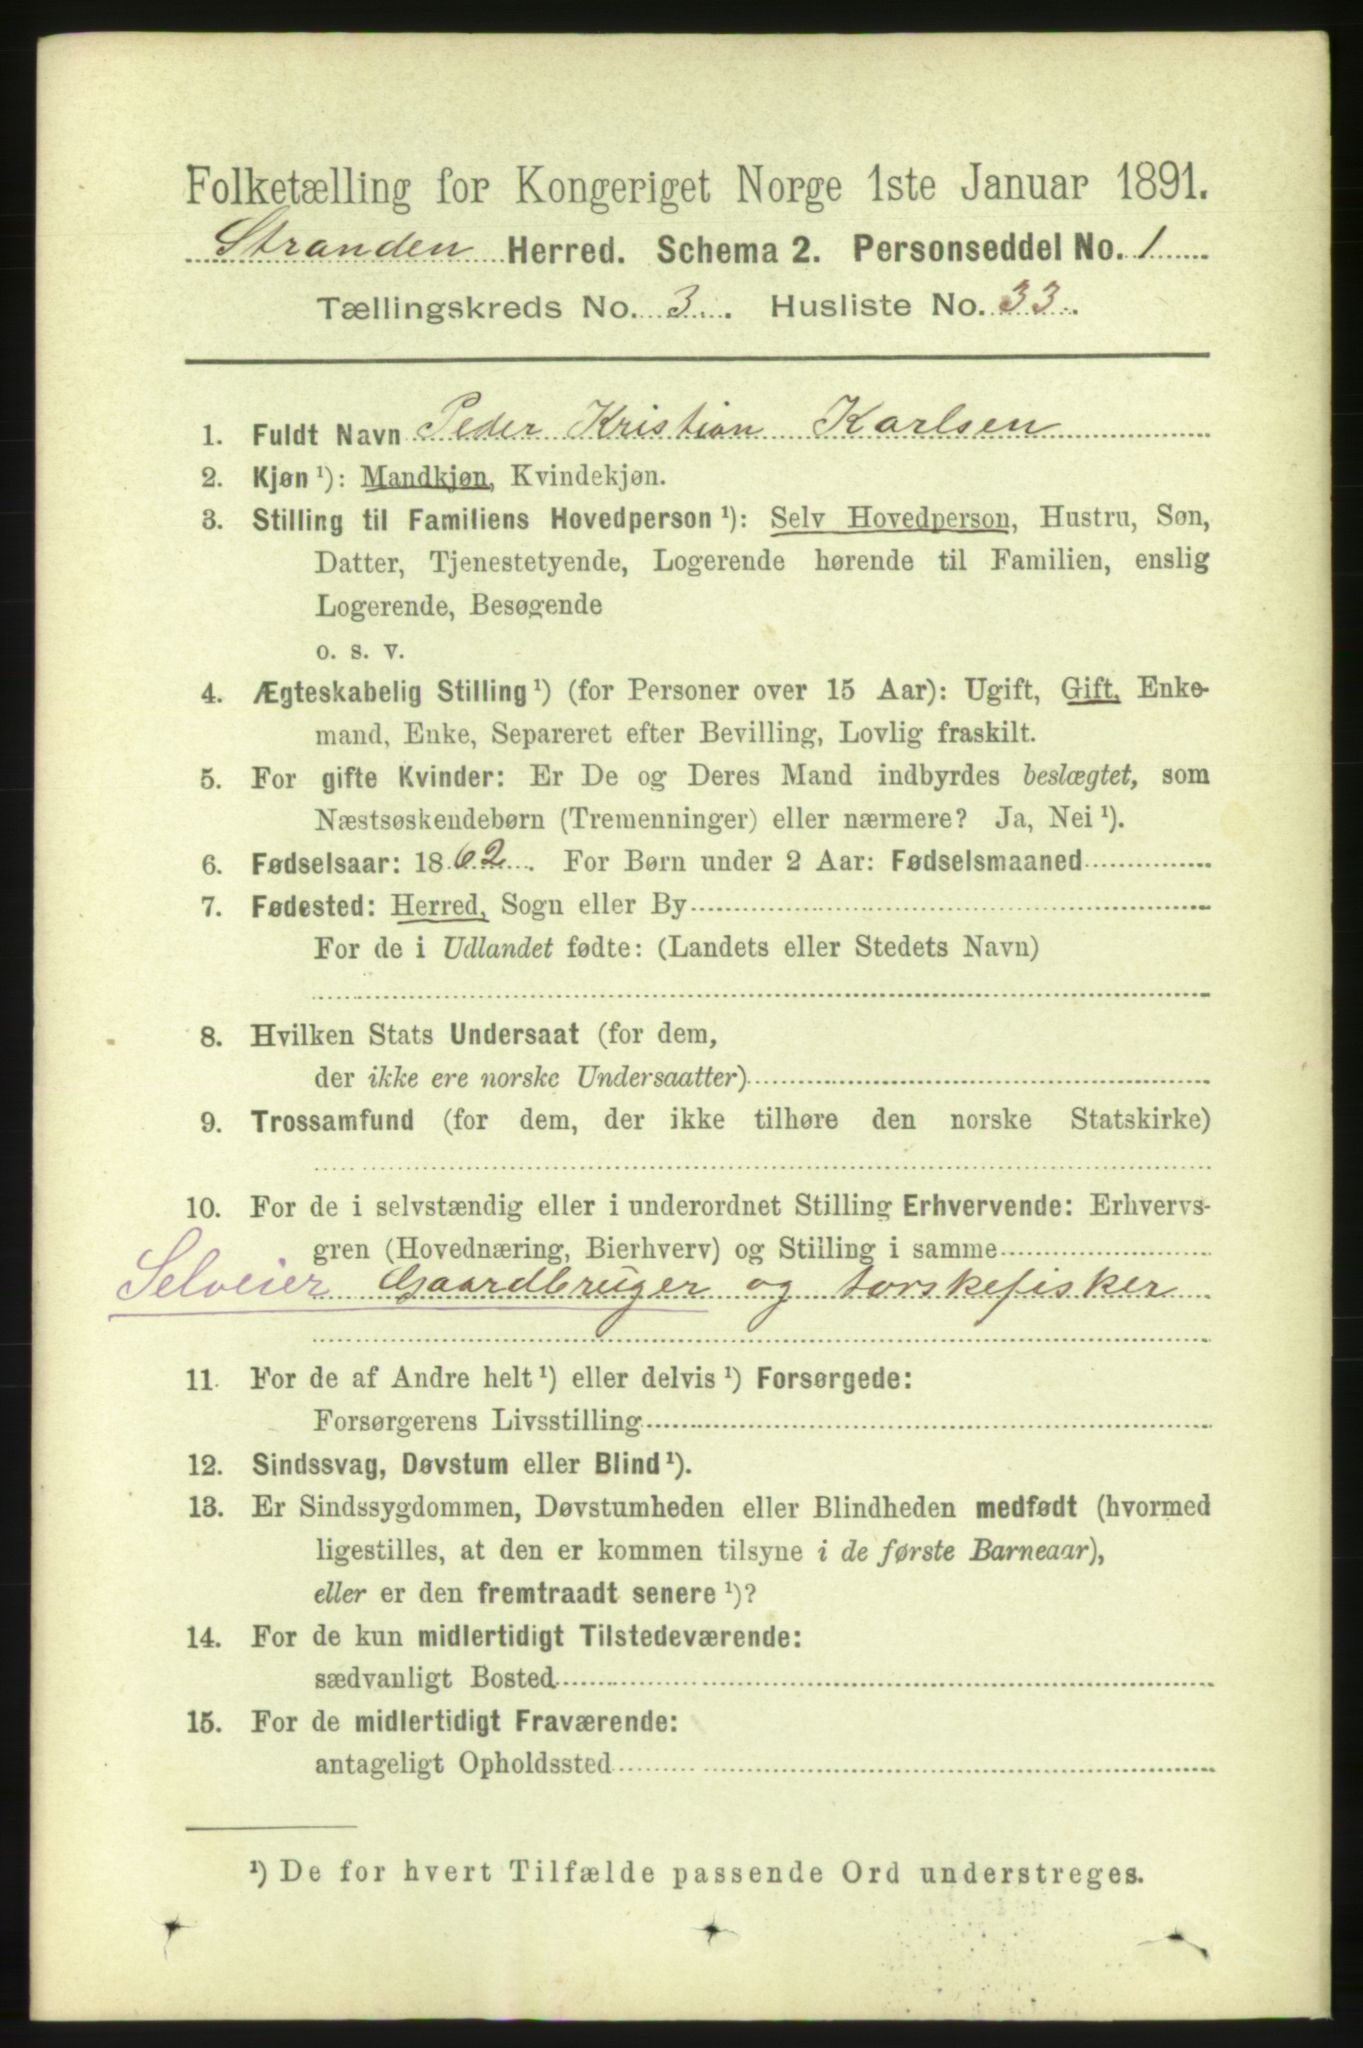 Folketælling for Kongeriget Norge 1ste Januar 1891.
Stranden Herred. Schema 2. Personseddel No. 1
Tællingskreds No. 3. Husliste No. 33.
1. Fuldt Navn Peder Kristian Karlsen
2. Kjøn ¹): Mandkjøn, Kvindekjøn.
3. Stilling til Familiens Hovedperson ¹): Selv Hovedperson, Hustru, Søn,
Datter, Tjenestetyende, Logerende hørende til Familien, enslig
Logerende, Besøgende
o. s. v.
4. Ægteskabelig Stilling ¹) (for Personer over 15 Aar): Ugift, Gift, Enke-
mand, Enke, Separeret efter Bevilling, Lovlig fraskilt.
5. For gifte Kvinder: Er De og Deres Mand indbyrdes beslægtet, som
Næstsøskendebørn (Tremenninger) eller nærmere? Ja, Nei ¹).
6. Fødselsaar: 1862. For Børn under 2 Aar: Fødselsmaaned
7. Fødested: Herred, Sogn eller By
For de i Udlandet fødte: (Landets eller Stedets Navn)
8. Hvilken Stats Undersaat (for dem,
der ikke ere norske Undersaatter)
9. Trossamfund (for dem, der ikke tilhøre den norske Statskirke)
10. For de i selvstændig eller i underordnet Stilling Erhvervende: Erhvervs-
gren (Hovednæring, Bierhverv) og Stilling i samme
Selveier Gaardbruger og torskefisker
11. For de af Andre helt ¹) eller delvis ¹) Forsørgede:
Forsørgerens Livsstilling
12. Sindssvag, Døvstum eller Blind ¹).
13. Er Sindssygdommen, Døvstumheden eller Blindheden medfødt (hvormed
ligestilles, at den er kommen tilsyne i de første Barneaar),
eller er den fremtraadt senere ¹)?
14. For de kun midlertidigt Tilstedeværende:
sædvanligt Bosted
15. For de midlertidigt Fraværende:
antageligt Opholdssted
¹) De for hvert Tilfælde passende Ord understreges.